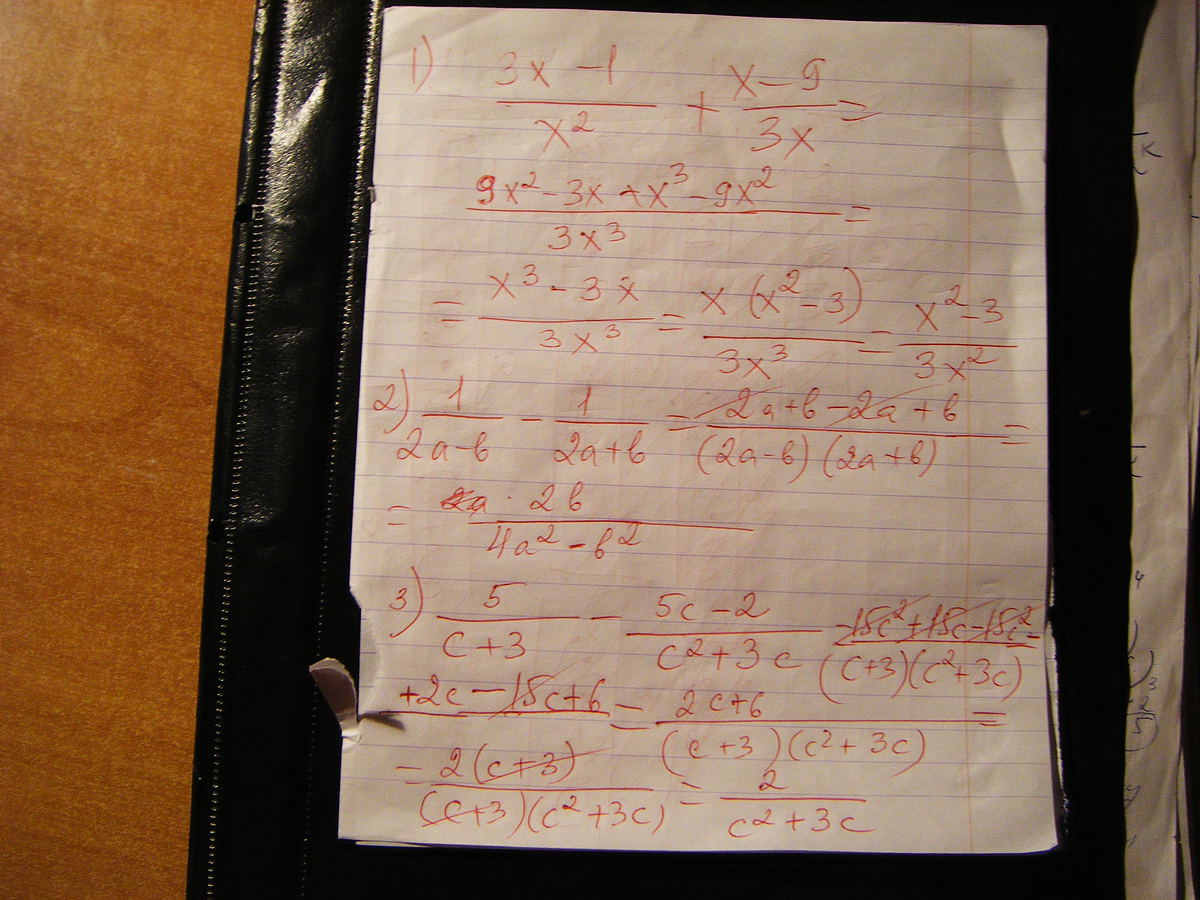 1) (3x - 1)/x² + (x - 9)/(3x) =
(9x² - 3x + x³ - 9x²)/(3x³) =
= (x³ - 3x)/(3x³) = (x (x² - 3))/(3x³) = (x² - 3)/(3x²)
2) 1/(2a - b) - 1/(2a + b) = (2a + b - 2a + b)/((2a - b) (2a + b)) =
= 2b/(4a² - b²)
3) 5/(c + 3) - (5c - 2)/(c² + 3c) (15c² + 15c - 15c² -)/((c + 3)(c² + 3c))
+ 2c - 15c + 6 = (2c + 6)/((c + 3)(c² + 3c)) =
= (2(c + 3))/((c + 3)(c² + 3c)) = 2/(c² + 3c)